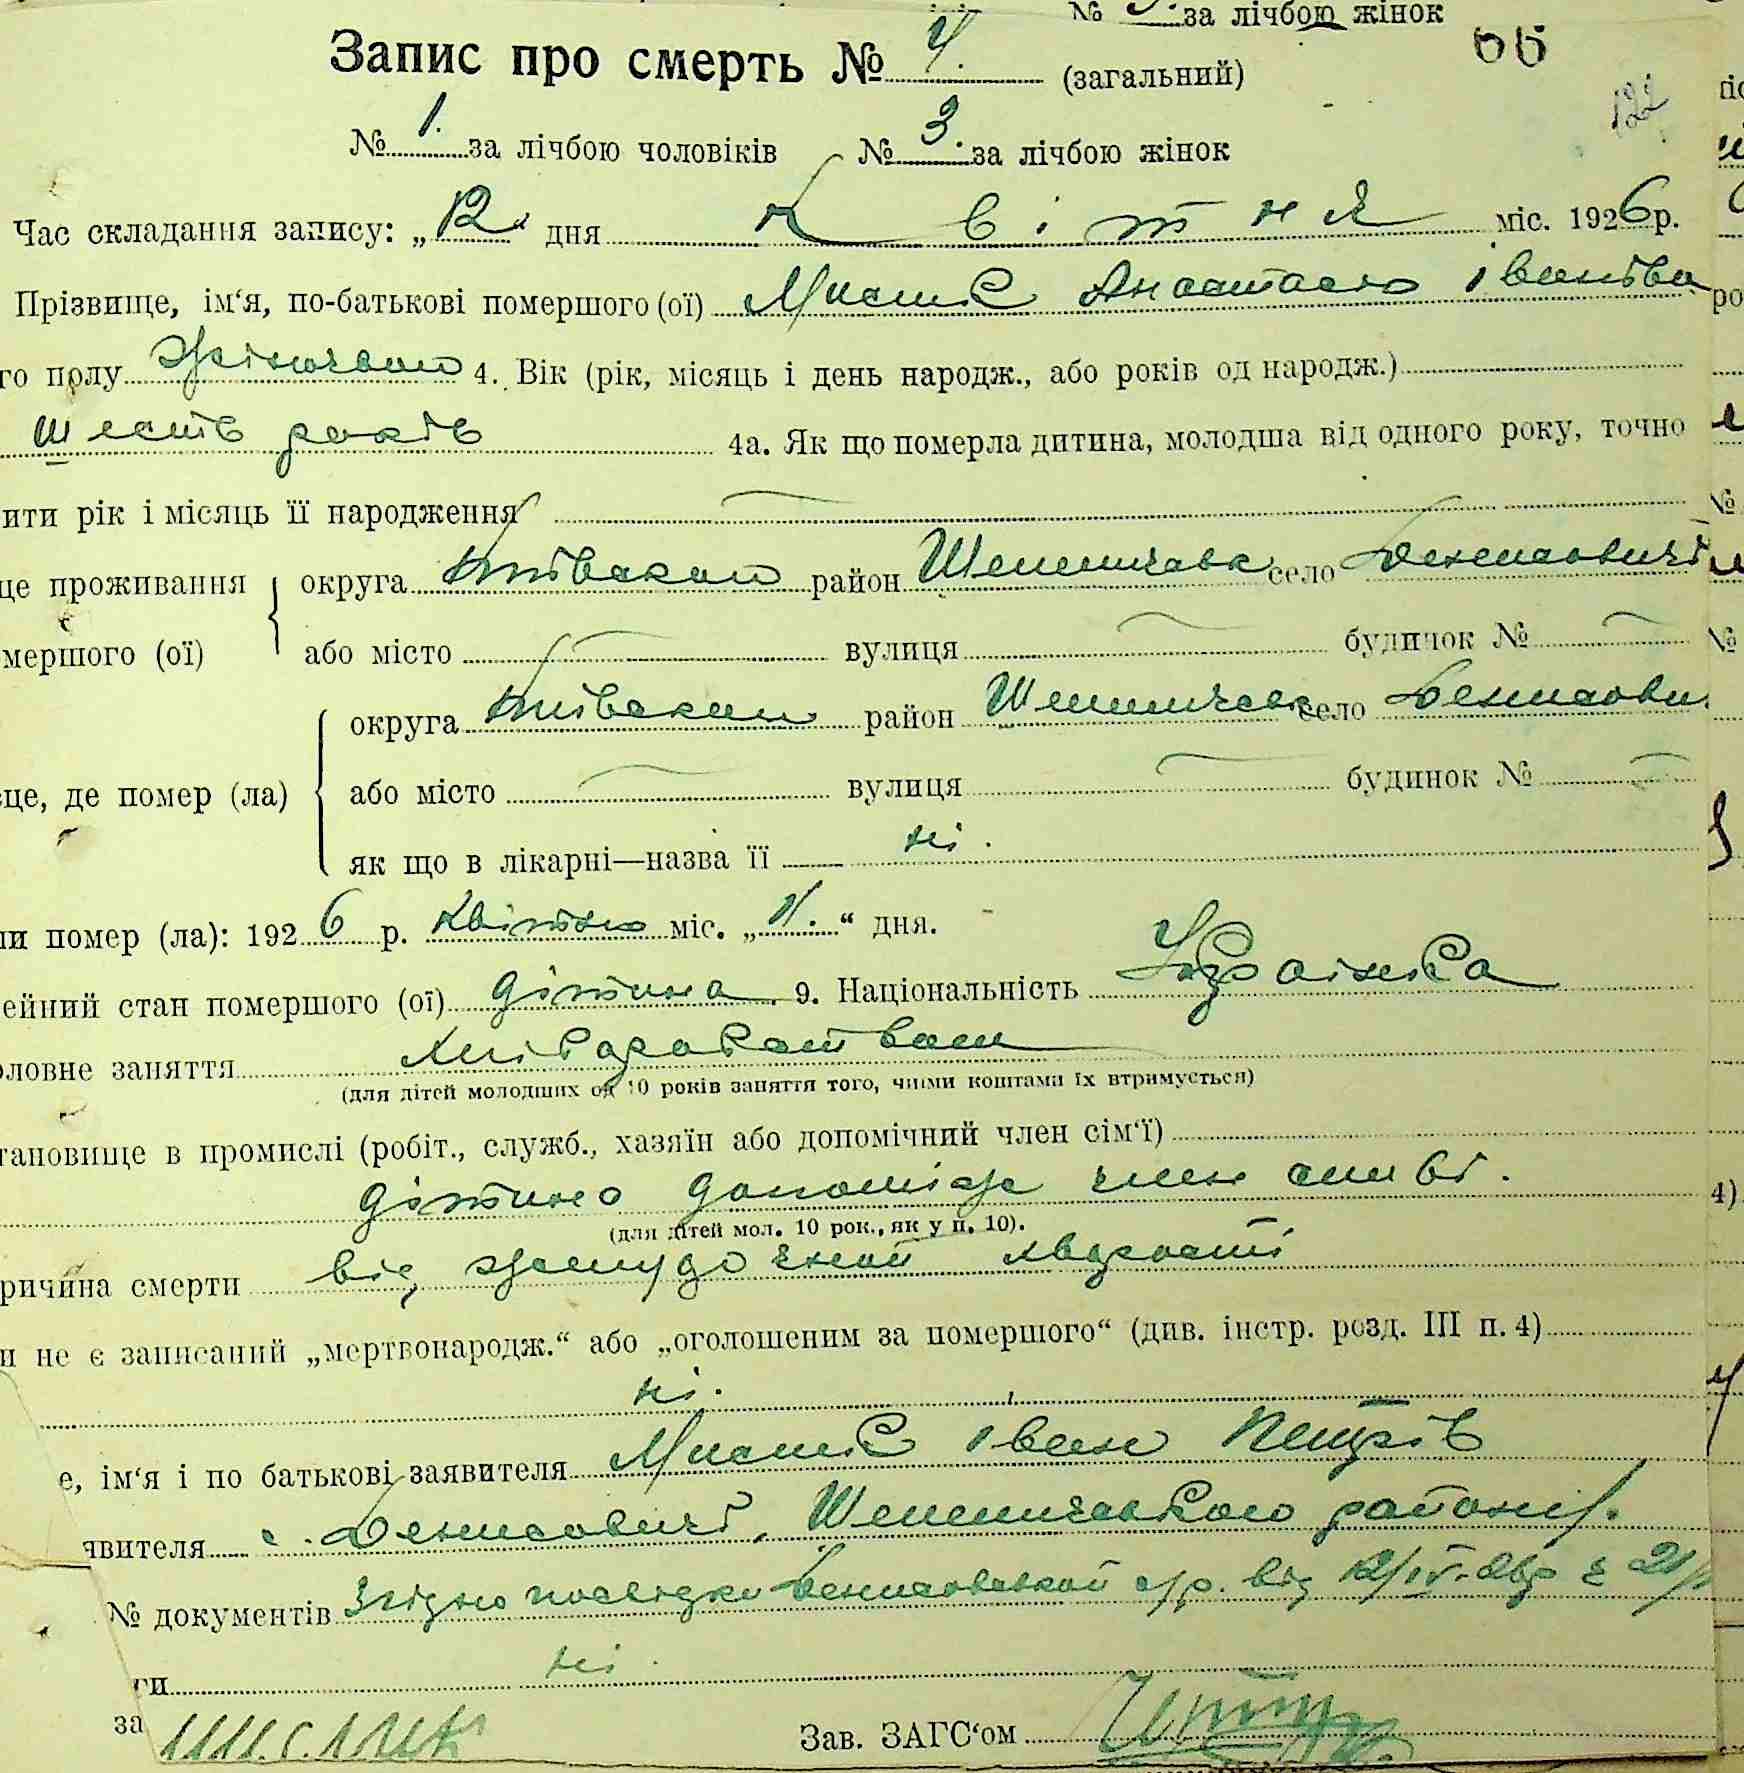 № 3. за лічбою жінок
Запис про смерть № 4. (загальний)
№ 1. за лічбою чоловіків № 3. за лічбою жінок
Час складання запису: „12“ дня Квітня міс. 1926 р.
Прізвище, ім‘я, по-батькові помершого (ої) Мисник Анастасія Іванівна
го полу жіночого 4. Вік (рік, місяць і день народж., або років од народж.)
шість років 4а. Як що померла дитина, молодша від одного року, точно
ити рік і місяць її народження —
це проживання округа Київської район Шепеличськ село Денисовичі
мершого (ої) або місто — вулиця — будинок № —
округа Київської район Шепеличськ село Денисови
сце, де помер (ла) або місто — вулиця — будинок № —
як що в лікарні—назва її ні.
ли помер (ла): 1926 р. Квітня міс. „11.“ дня.
ейний стан помершого (ої) дітина 9. Національність Українка
оловне заняття Хліборобством
(для дітей молодших од 10 років заняття того, чиїми коштами їх втримується)
тановище в промислі (робіт., служб., хазяїн або допомічний член сім‘ї)
дітина допоміж член
(для дітей мол. 10 рок., як у п. 10).
ричина смерти від желудочной хворості
и не є записаний „мертвонародж.“ або „оголошеним за помершого“ (див. інстр. розд. III п. 4)
ні.
е, ім‘я і по батькові заявителя Мисник Іван Петрів
явителя с. Денисовичі, Шепеличського району.
№ документів Згідно посвідки Денисовської с/р. від 12/IV-26р
ги ні.
за
Зав. ЗАГС‘ом